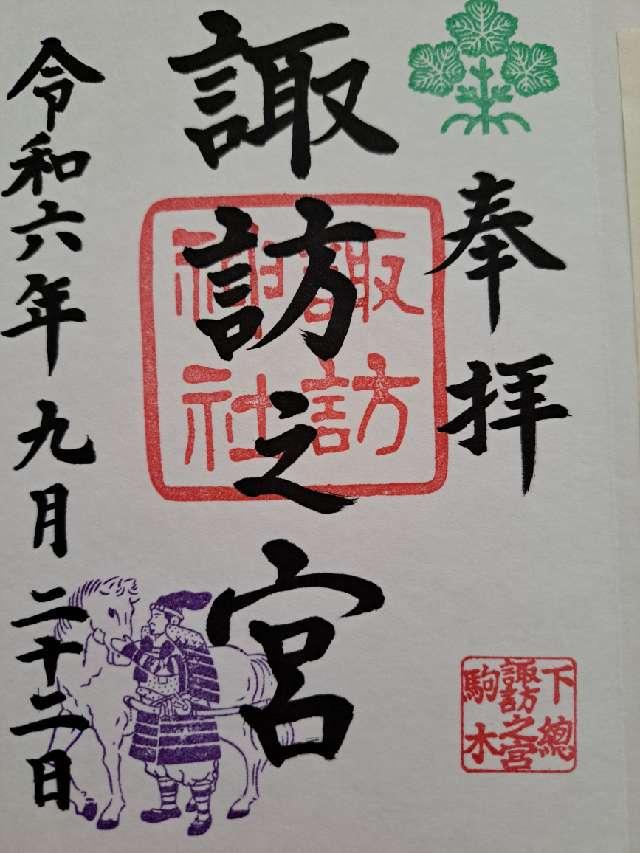 奉拝
諏訪之宮
諏訪
神社
令和六年九月二十二日
下總
諏訪之宮
駒木